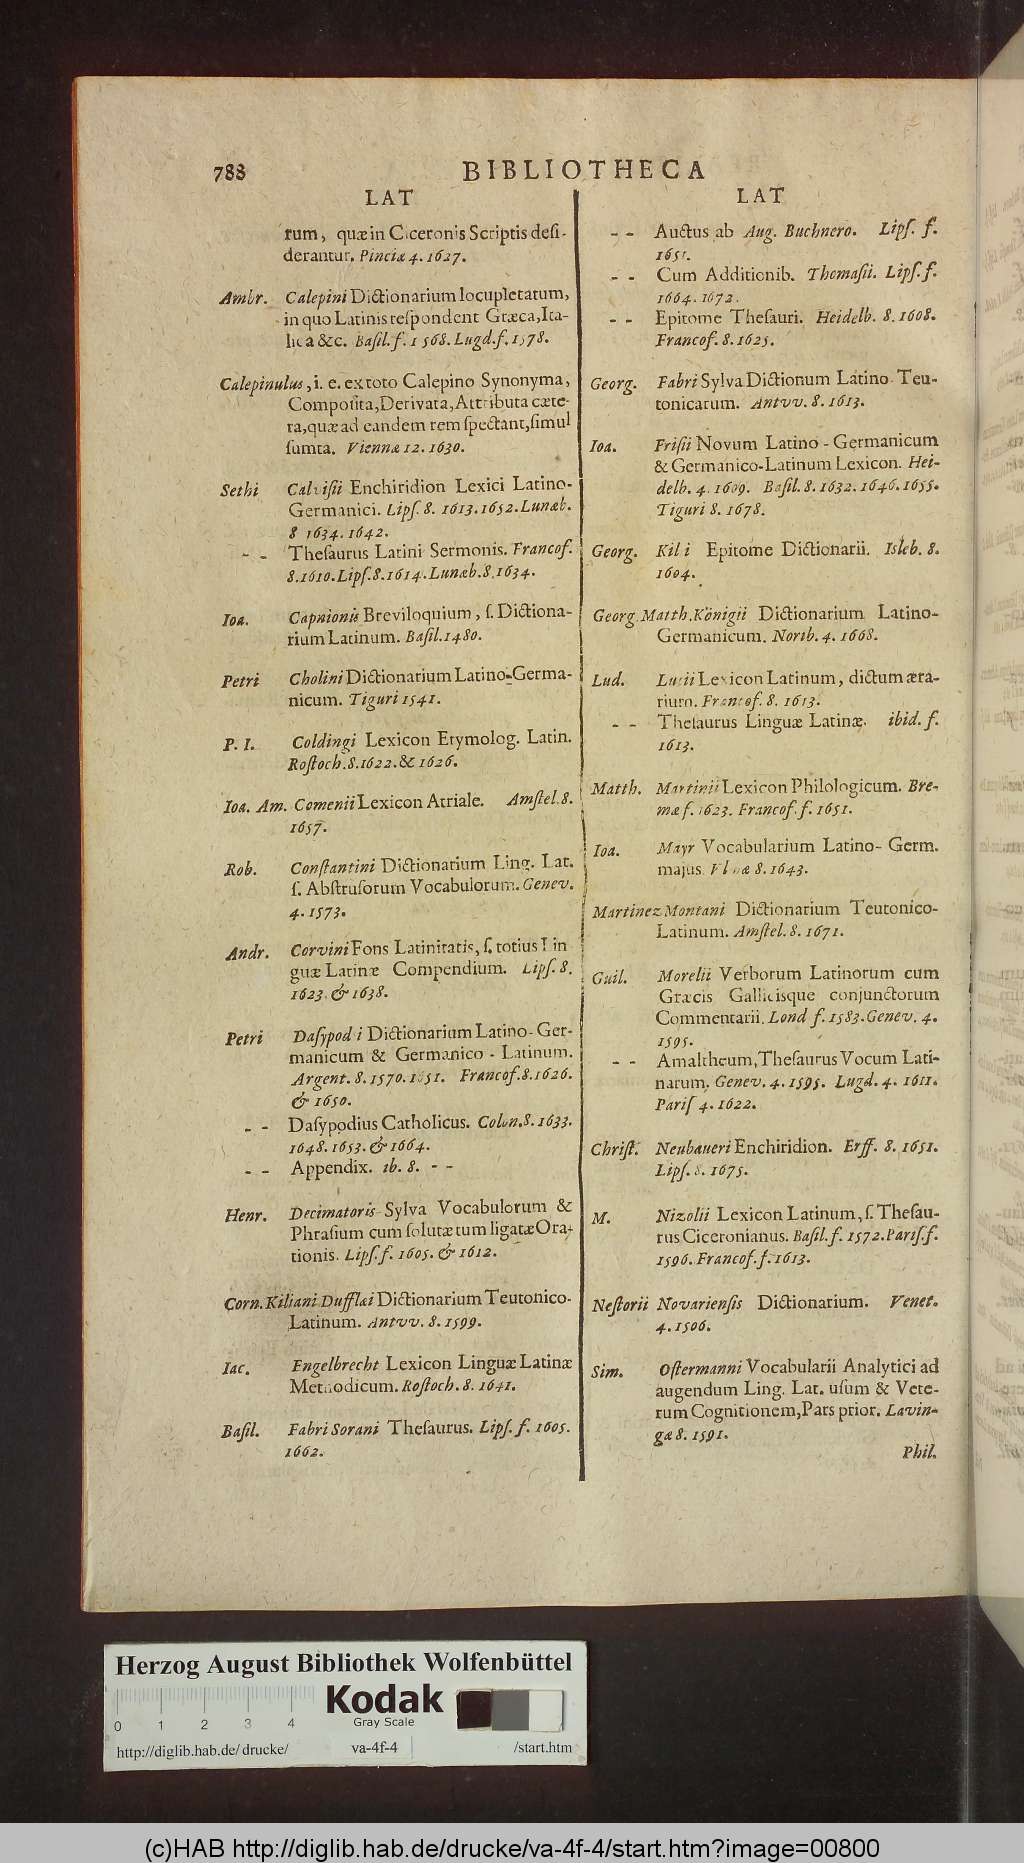 788
BIBLIOTHECA
LAT
rum, quæ in Ciceronis Scriptis desi-
derantur. Pinciæ 4. 1627.
Ambr. Calepini Dictionarium locupletatum,
in quo Latinis respondent Græca, Ita-
lica &c. Basil. f. 1568. Lugd. f. 1578.
Calepinulus, i. e. ex toto Calepino Synonyma,
Composita, Derivata, Attributa cæte-
ra, quæ ad eandem rem spectant, simul
sumta. Viennæ 12. 1630.
Sethi Calvisii Enchiridion Lexici Latino-
Germanici. Lips. 8. 1613. 1652. Lunæb.
8 1634. 1642.
- - Thesaurus Latini Sermonis. Francof.
8. 1610. Lips. 8. 1614. Lunæb. 8. 1634.
Ioa. Capnionis Breviloquium, s. Dictiona-
rium Latinum. Basil. 1480.
Petri Cholini Dictionarium Latino-Germa-
nicum. Tiguri 1541.
P. I. Coldingi Lexicon Etymolog. Latin.
Rostoch. 8. 1622. & 1626.
Ioa. Am. Comenii Lexicon Atriale. Amstel. 8.
1657.
Rob. Constantini Dictionarium Ling. Lat.
s. Abstrusorum Vocabulorum. Genev.
4. 1573.
Andr. Corvini Fons Latinitatis, s. totius Lin
guæ Latinæ Compendium. Lips. 8.
1623. & 1638.
Petri Dasypodii Dictionarium Latino-Ger-
manicum & Germanico-Latinum.
Argent. 8. 1570. 1651. Francof. 8. 1626.
& 1650.
- - Dasypodius Catholicus. Colon. 8. 1633.
1648. 1653. & 1664.
- - Appendix. ib. 8. - -
Henr. Decimatoris Sylva Vocabulorum &
Phrasium cum solutæ tum ligatæ Ora-
tionis. Lips. f. 1605. & 1612.
Corn. Kiliani Dufflæi Dictionarium Teutonico-
Latinum. Antvv. 8. 1599.
Iac. Engelbrecht Lexicon Linguæ Latinæ
Methodicum. Rostoch. 8. 1641.
Basil. Fabri Sorani Thesaurus. Lips. f. 1605.
1662.
LAT
- - Auctus ab Aug. Buchnero. Lips. f.
1651.
- - Cum Additionib. Thomasii. Lips. f.
1664. 1672.
- - Epitome Thesauri. Heidelb. 8. 1608.
Francof. 8. 1625.
Georg. Fabri Sylva Dictionum Latino-Teu-
tonicarum. Antvv. 8. 1613.
Ioa. Frisii Novum Latino-Germanicum
& Germanico-Latinum Lexicon. Hei-
delb. 4. 1609. Basil. 8. 1632. 1646. 1655.
Tiguri 8. 1678.
Georg. Kilii Epitome Dictionarii. Isleb. 8.
1604.
Georg. Matth. Königii Dictionarium Latino-
Germanicum. Norib. 4. 1668.
Lud. Lucii Lexicon Latinum, dictum æra-
rium. Francof. 8. 1613.
- - Thesaurus Linguæ Latinæ. ibid. f.
1613.
Matth. Martinii Lexicon Philologicum. Bre-
mæ f. 1623. Francof. f. 1651.
Ioa. Mayr Vocabularium Latino-Germ.
majus. Ulmæ 8. 1643.
Martinez Montani Dictionarium Teutonico-
Latinum. Amstel. 8. 1671.
Guil. Morelii Verborum Latinorum cum
Græcis Gallicisque conjunctorum
Commentarii. Lond f. 1583. Genev. 4.
1595.
- - Amaltheum, Thesaurus Vocum Lati-
narum. Genev. 4. 1595. Lugd. 4. 1611.
Paris 4. 1622.
Christ. Neubaueri Enchiridion. Erff. 8. 1651.
Lips. 8. 1675.
M. Nizolii Lexicon Latinum, s. Thesau-
rus Ciceronianus. Basil. f. 1572. Paris. f.
1596. Francof. f. 1613.
Nestorii Novariensis Dictionarium. Venet.
4. 1506.
Sim. Ostermanni Vocabularii Analytici ad
augendum Ling. Lat. usum & Vete-
rum Cognitionem, Pars prior. Lavin-
gæ 8. 1591.
Phil.
Herzog August Bibliothek Wolfenbüttel
Kodak
Gray Scale
0 1 2 3 4
http://diglib.hab.de/drucke/ va-4f-4 /start.htm
(c)HAB http://diglib.hab.de/drucke/va-4f-4/start.htm?image=00800